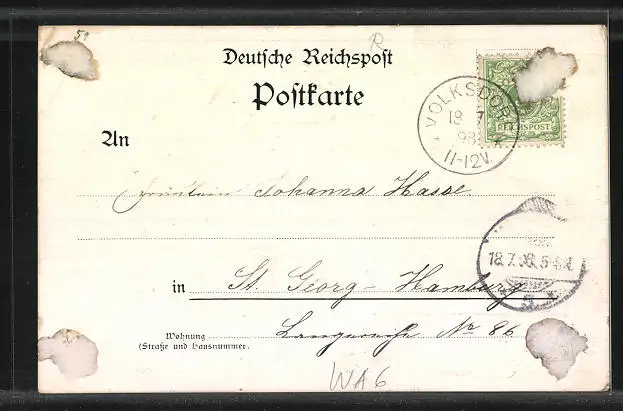 Deutsche Reichspost
Postkarte
VOLKSDORF
18 7
98
11-12V.
REICHSPOST
An
Fräulein Johanna Hasse
18.7.98. 5-6N.
in St. Georg - Hamburg
5
Wohnung
(Straße und Hausnummer.
Langereihe No 86
WA6